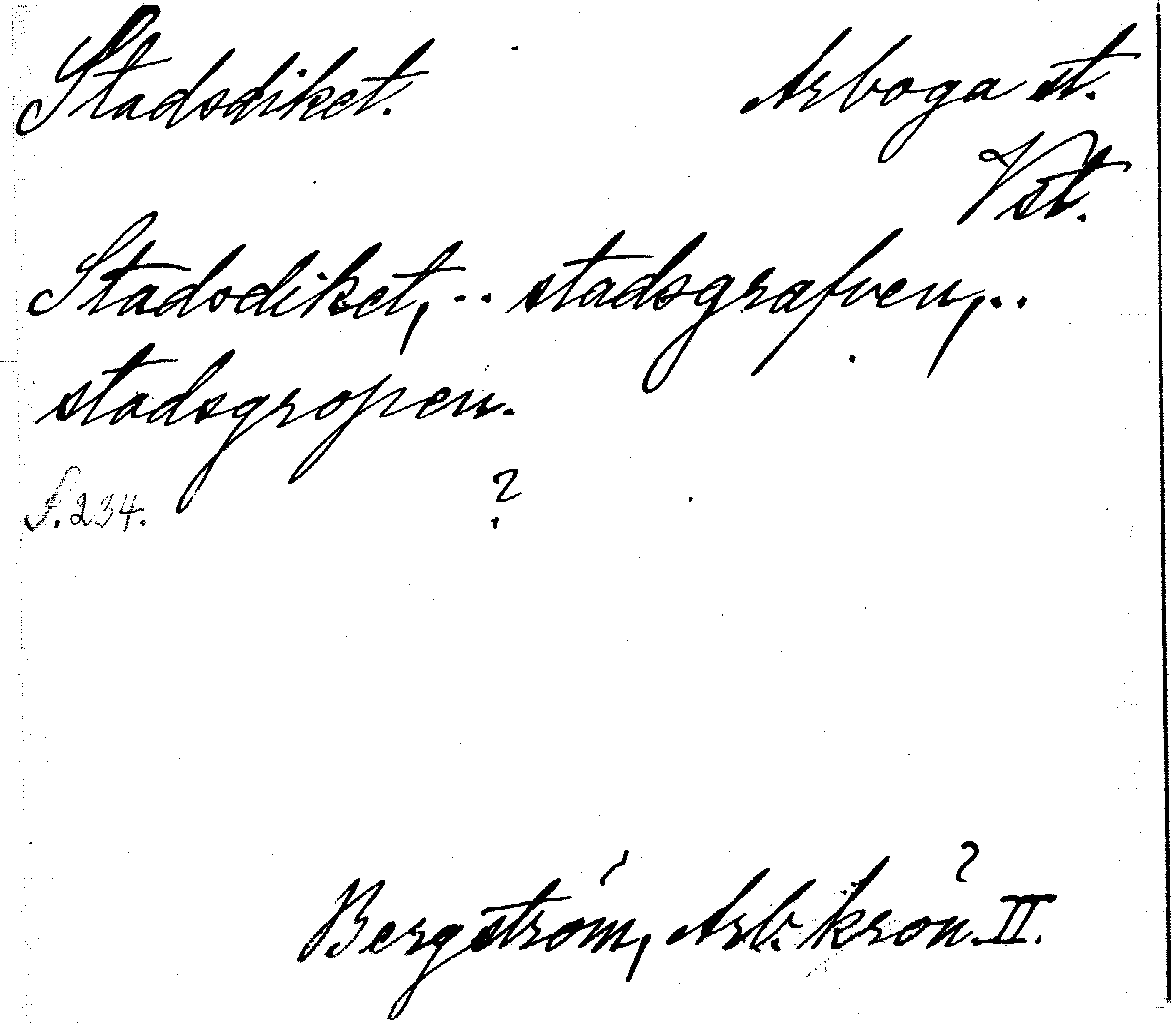 Stadsdiket. Arboga st.
Vst.
Stadsdiket, .. stadsgrafven, ..
stadsgropen.
S. 234. ?
Bergström, Arb. krön. II.